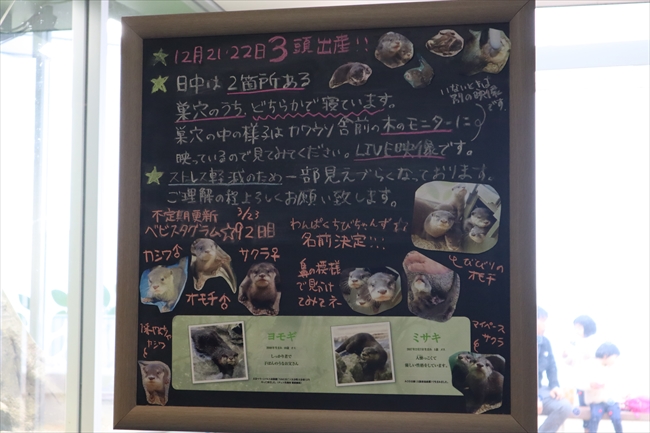 12月21・22日3頭出産!!
日中は2箇所ある
巣穴のうち、どちらかで寝ています。
巣穴の中の様子はカワウソ舎前の木のモニターに
映っているので見てみてください。LIVE映像です。
いないときは
です
ストレス軽減のため一部見えづらくなっております。
ご理解の程よろしくお願い致します。
不定期更新 3/23
ベビスタグラム☆92日目
わんぱくちびちゃんず
名前決定!!!
カシワ♂
サクラ♀
オモチ♂
鼻の模様
で見分け
てみてネ
オモチ
カシワ
マイペース
サクラ
ヨモギ
ミサキ